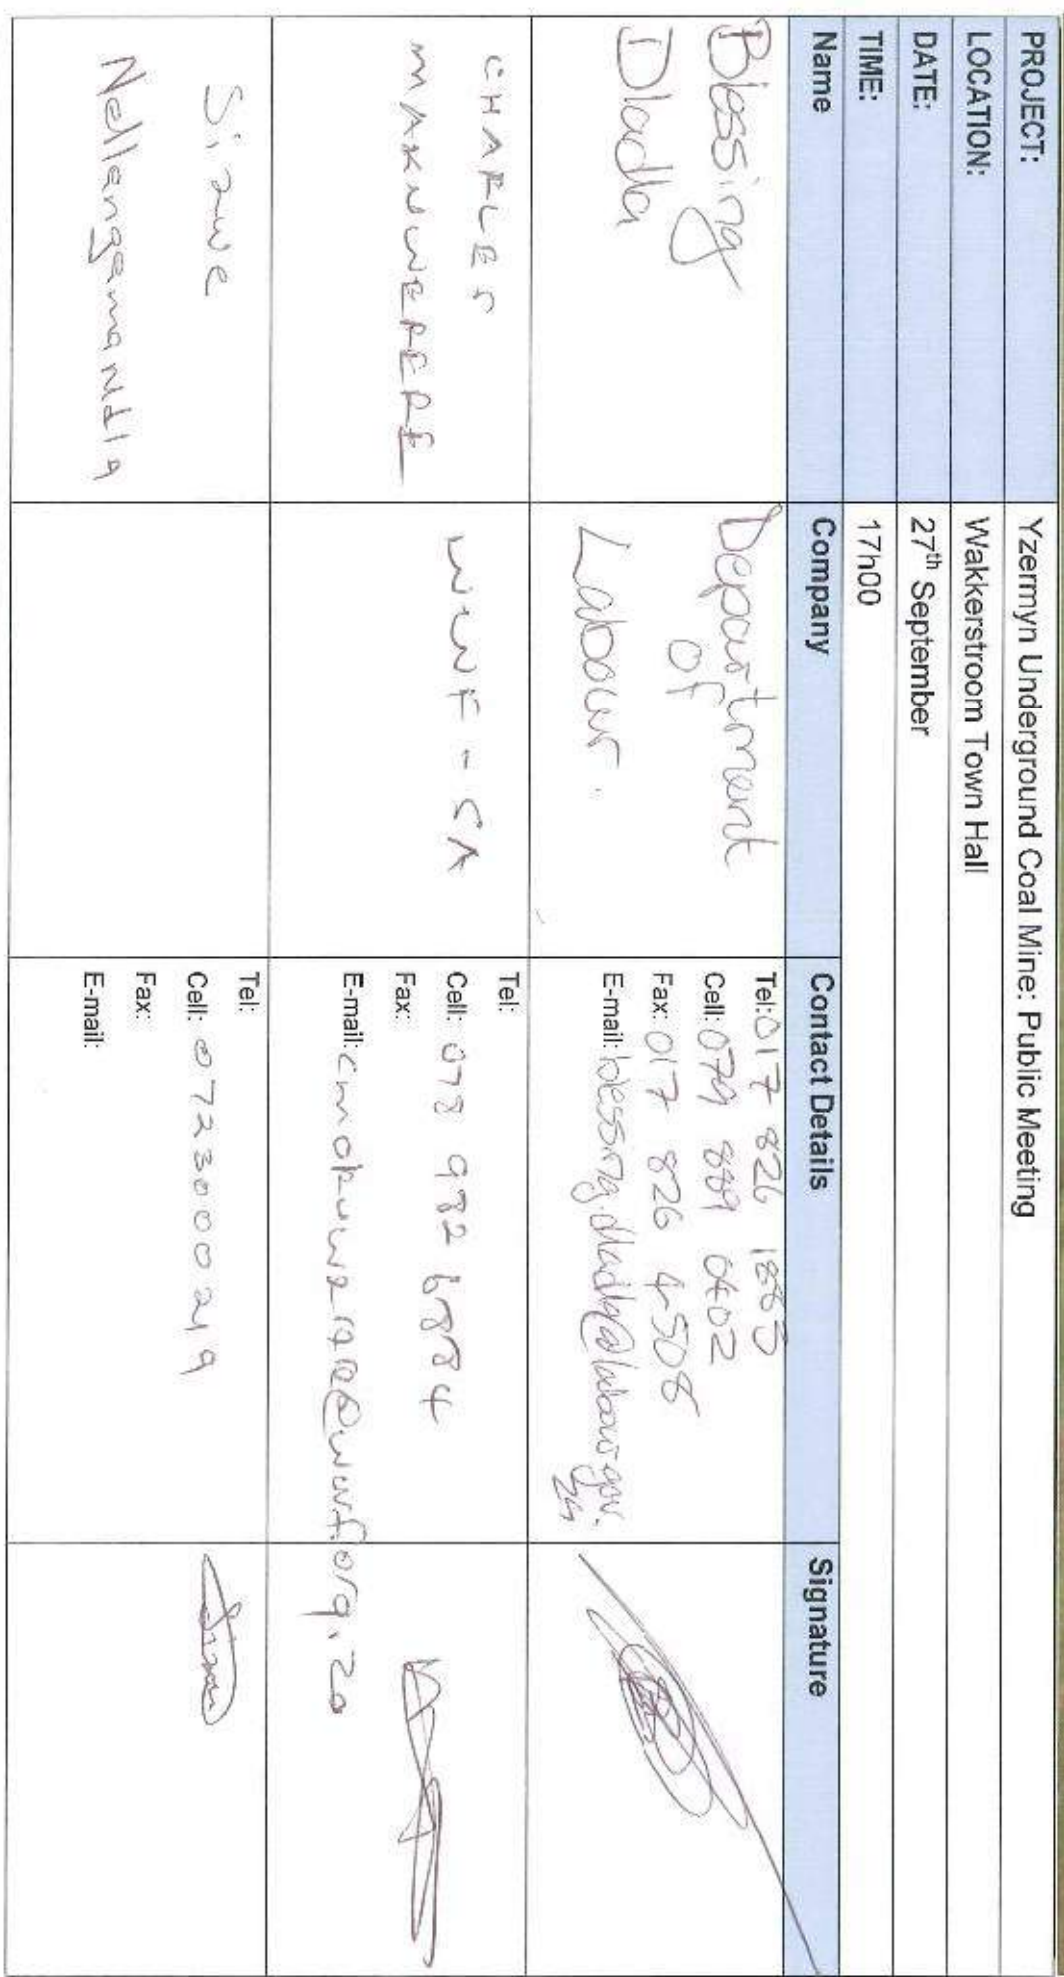 PROJECT: Yzermyn Underground Coal Mine: Public Meeting
LOCATION: Wakkerstroom Town Hall
DATE: 27th September
TIME: 17h00
Name Company Contact Details Signature
Blessing
Dladla
Department
of
Labour.
Tel: 017 826 1883
Cell: 079 889 0402
Fax: 017 826 4508
E-mail: blessing.dladla@labour.gov.
za
CHARLES
MAKUWERERE
WWF-SA
Tel:
Cell: 078 982 6884
Fax:
E-mail: cmakuwerere@wwf.org.za
Sizwe
Tel:
Cell: 0723000219
Fax:
E-mail: